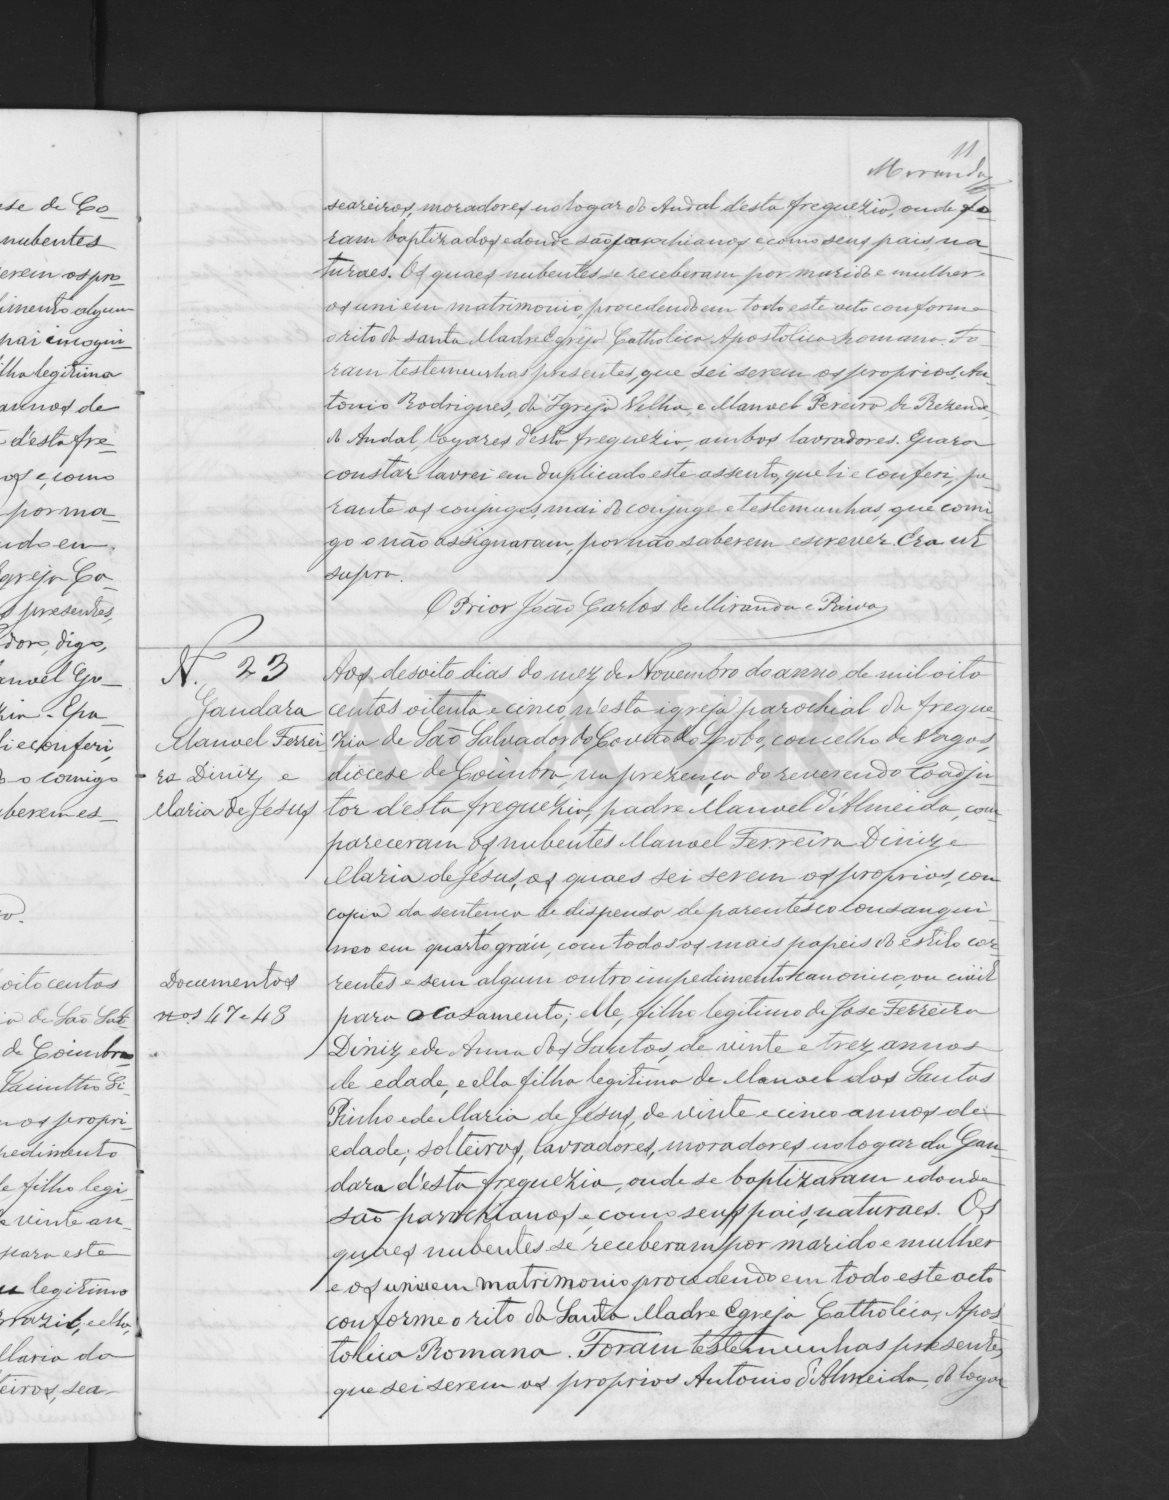 11
Miranda
seareiros, moradores no logar do Andal desta freguezia, onde fo-
ram baptizados e donde são parochianos e como seus pais na-
turaes. Os quaes nubentes se receberam por marido e mulher e
os uni em matrimonio, procedendo em todo este acto conforme
o rito da santa Madre Egreja Catholica Apostolica Romana. Fo-
ram testemunhas presentes, que sei serem os proprios, An-
tonio Rodrigues, da Igreja Velha, e Manoel Pereira de Rezende,
do Andal, logares desta freguezia, ambos lavradores. E para
constar lavrei em duplicado este assento, que li e conferi, pe-
rante os conjuges, mai do conjuge e testemunhas, que comi-
go o não assignaram, por não saberem escrever. Era ut
supra.
O Prior João Carlos de Miranda e Paiva
N. 23
Gandara
Manoel Ferrei
ra Diniz e
Maria de Jesus
Documentos
nos 47 e 48
Aos desoito dias do mez de Novembro do anno de mil oito
centos oitenta e cinco, n'esta igreja parochial da fregue-
zia de São Salvador do Covão do Lobo, concelho de Vagos,
diocese de Coimbra, na prezença do reverendo Coadju-
tor d'esta freguezia, padre Manoel d'Almeida, com-
pareceram os nubentes Manoel Ferreira Diniz e
Maria de Jesus, os quaes sei serem os proprios, com
copia da sentença de dispensa de parentesco consangui-
neo em quarto gráu, com todos os mais papeis do estilo cor-
rentes e sem algum outro impedimento canonico, ou civil
para o casamento; elle, filho legitimo de Jose Ferreira
Diniz e de Anna dos Santos, de vinte e trez annos
de edade, e ella filha legitima de Manoel dos Santos
Pinho e de Maria de Jesus, de vinte e cinco annos de
edade; solteiros, lavradores, moradores no logar da Gan-
dara d'esta freguezia, onde se baptizaram e donde
são parochianos e, como seus pais, naturaes. Os
quaes nubentes se receberam por marido e mulher
e os uni em matrimonio procedendo em todo este acto
conforme o rito da Santa Madre Egreja Catholica, Apos
tolica Romana. Foram testemunhas presentes,
que sei serem os proprios Antonio d'Almeida, do logar
se de Co-
nubentes
erem os pro-
dimento algum
pai incogni-
ilha legitima
annos de
d'esta fre-
os e, como
por ma-
ido em
Egreja Ca
s presentes,
dor, digo,
anoel Go-
zia. E pa-
li e conferi,
o comigo
berem es-
oito centos
ia de São Sal
de Coimbra
Jacintho Di-
n os propri-
pedimento
le filho legi-
e vinte an-
para este
legitimo
Brazil, e ella,
Maria da
eiros, sea-